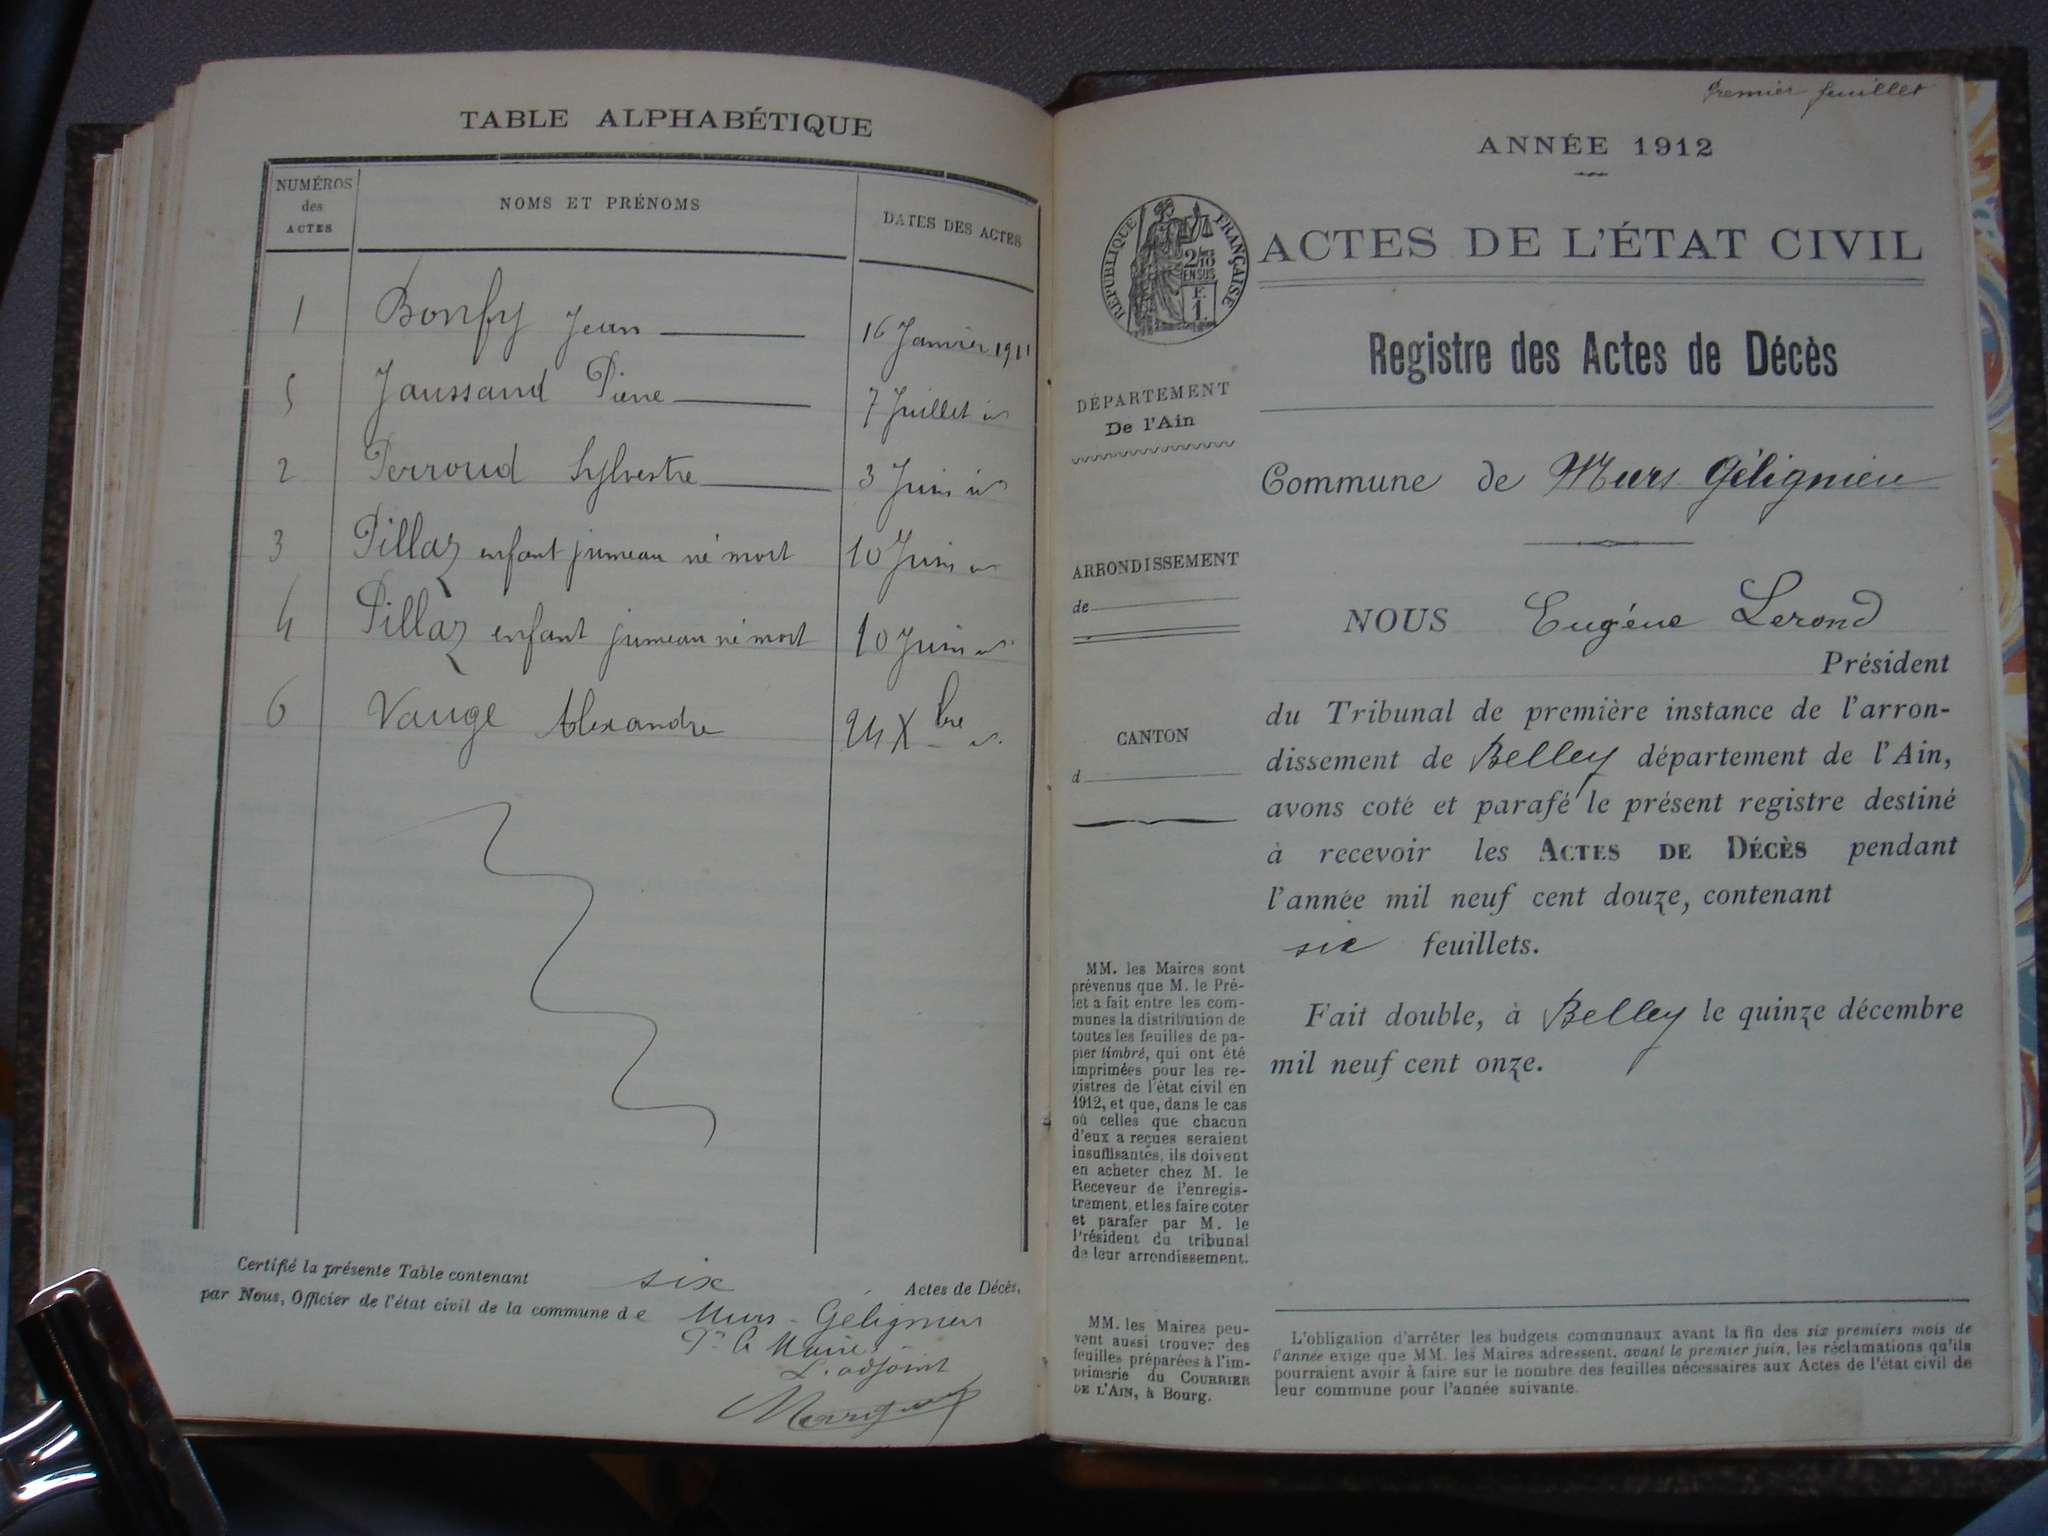 TABLE ALPHABÉTIQUE
NUMÉROS des ACTES
NOMS ET PRÉNOMS
DATES DES ACTES
1 Bonfy Jean 16 Janvier 1911
5 Jaussand Pierre 7 Juillet id
2 Perroud Sylvestre 3 Juin id
3 Pillaz enfant jumeau né mort 10 Juin id
4 Pillaz enfant jumeau né mort 10 Juin id
6 Vauge Alexandre 24 Xbre id
Certifié la présente Table contenant six Actes de Décès,
par Nous, Officier de l'état civil de la commune de Murs-Gélignieu
Pr le Maire
L'adjoint
premier feuillet
ANNÉE 1912
ACTES DE L'ÉTAT CIVIL
RÉPUBLIQUE FRANÇAISE
2/10
EN SUS
F.
1.
Registre des Actes de Décès
DÉPARTEMENT
De l'Ain
Commune de Murs Gélignieu
ARRONDISSEMENT
de
CANTON
d
NOUS Eugène Lerond
Président
du Tribunal de première instance de l'arron-
dissement de Belley département de l'Ain,
avons coté et parafé le présent registre destiné
à recevoir les ACTES DE DÉCÈS pendant
l'année mil neuf cent douze, contenant
six feuillets.
Fait double, à Belley le quinze décembre
mil neuf cent onze.
MM. les Maires sont
prévenus que M. le Pré-
fet a fait entre les com-
munes la distribution de
toutes les feuilles de pa-
pier timbré, qui ont été
imprimées pour les re-
gistres de l'état civil en
1912, et que, dans le cas
où celles que chacun
d'eux a reçues seraient
insuffisantes, ils doivent
en acheter chez M. le
Receveur de l'enregis-
trement, et les faire coter
et parafer par M. le
Président du tribunal
de leur arrondissement.
MM. les Maires peu-
vent aussi trouver des
feuilles préparées à l'im-
primerie du COURRIER
DE L'AIN, à Bourg.
L'obligation d'arrêter les budgets communaux avant la fin des six premiers mois de
l'année exige que MM. les Maires adressent, avant le premier juin, les réclamations qu'ils
pourraient avoir à faire sur le nombre des feuilles nécessaires aux Actes de l'état civil de
leur commune pour l'année suivante.